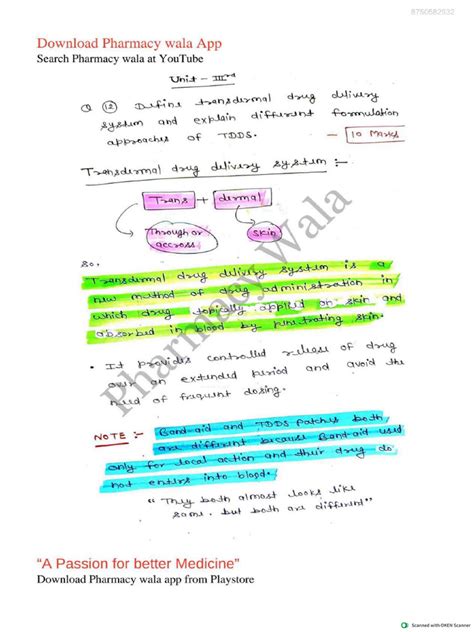 8750582032
Download Pharmacy wala App
Search Pharmacy wala at YouTube
Unit - IIIrd
Q (12) Define transdermal drug delivery
system and explain different formulation
approaches of TDDS. - 10 Marks
Transdermal drug delivery system :-
Trans + dermal
Through or
accross
skin
so,
Transdermal drug delivery system is a
new method of drug administration in
which drug topically applied on skin and
absorbed in blood by penetrating skin.
• It provides controlled release of drug
over an extended period and avoid the
need of frequent dosing.
NOTE :- Band-aid and TDDS patches both
are different because Band-aid used
only for local action and their drug do
not enters into blood.
" They both almost looks like
same. but both are different"
Pharmacy Wala
“A Passion for better Medicine”
Download Pharmacy wala app from Playstore
Scanned with OKEN Scanner